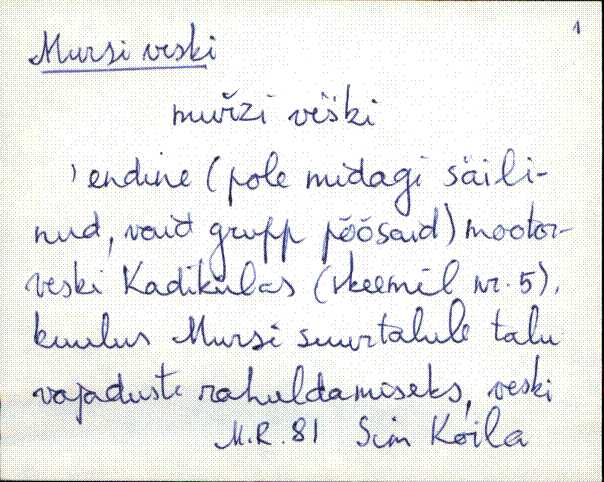 1
Mursi veski
muřzi vèški
'endine (pole midagi säili-
nud, vaid grupp põõsaid) mootor-
veski Kadikülas (skeemil nr. 5),
kuulus Mursi suurtalule talu
vajaduste rahuldamiseks, veski
M.R. 81 Sim Koila